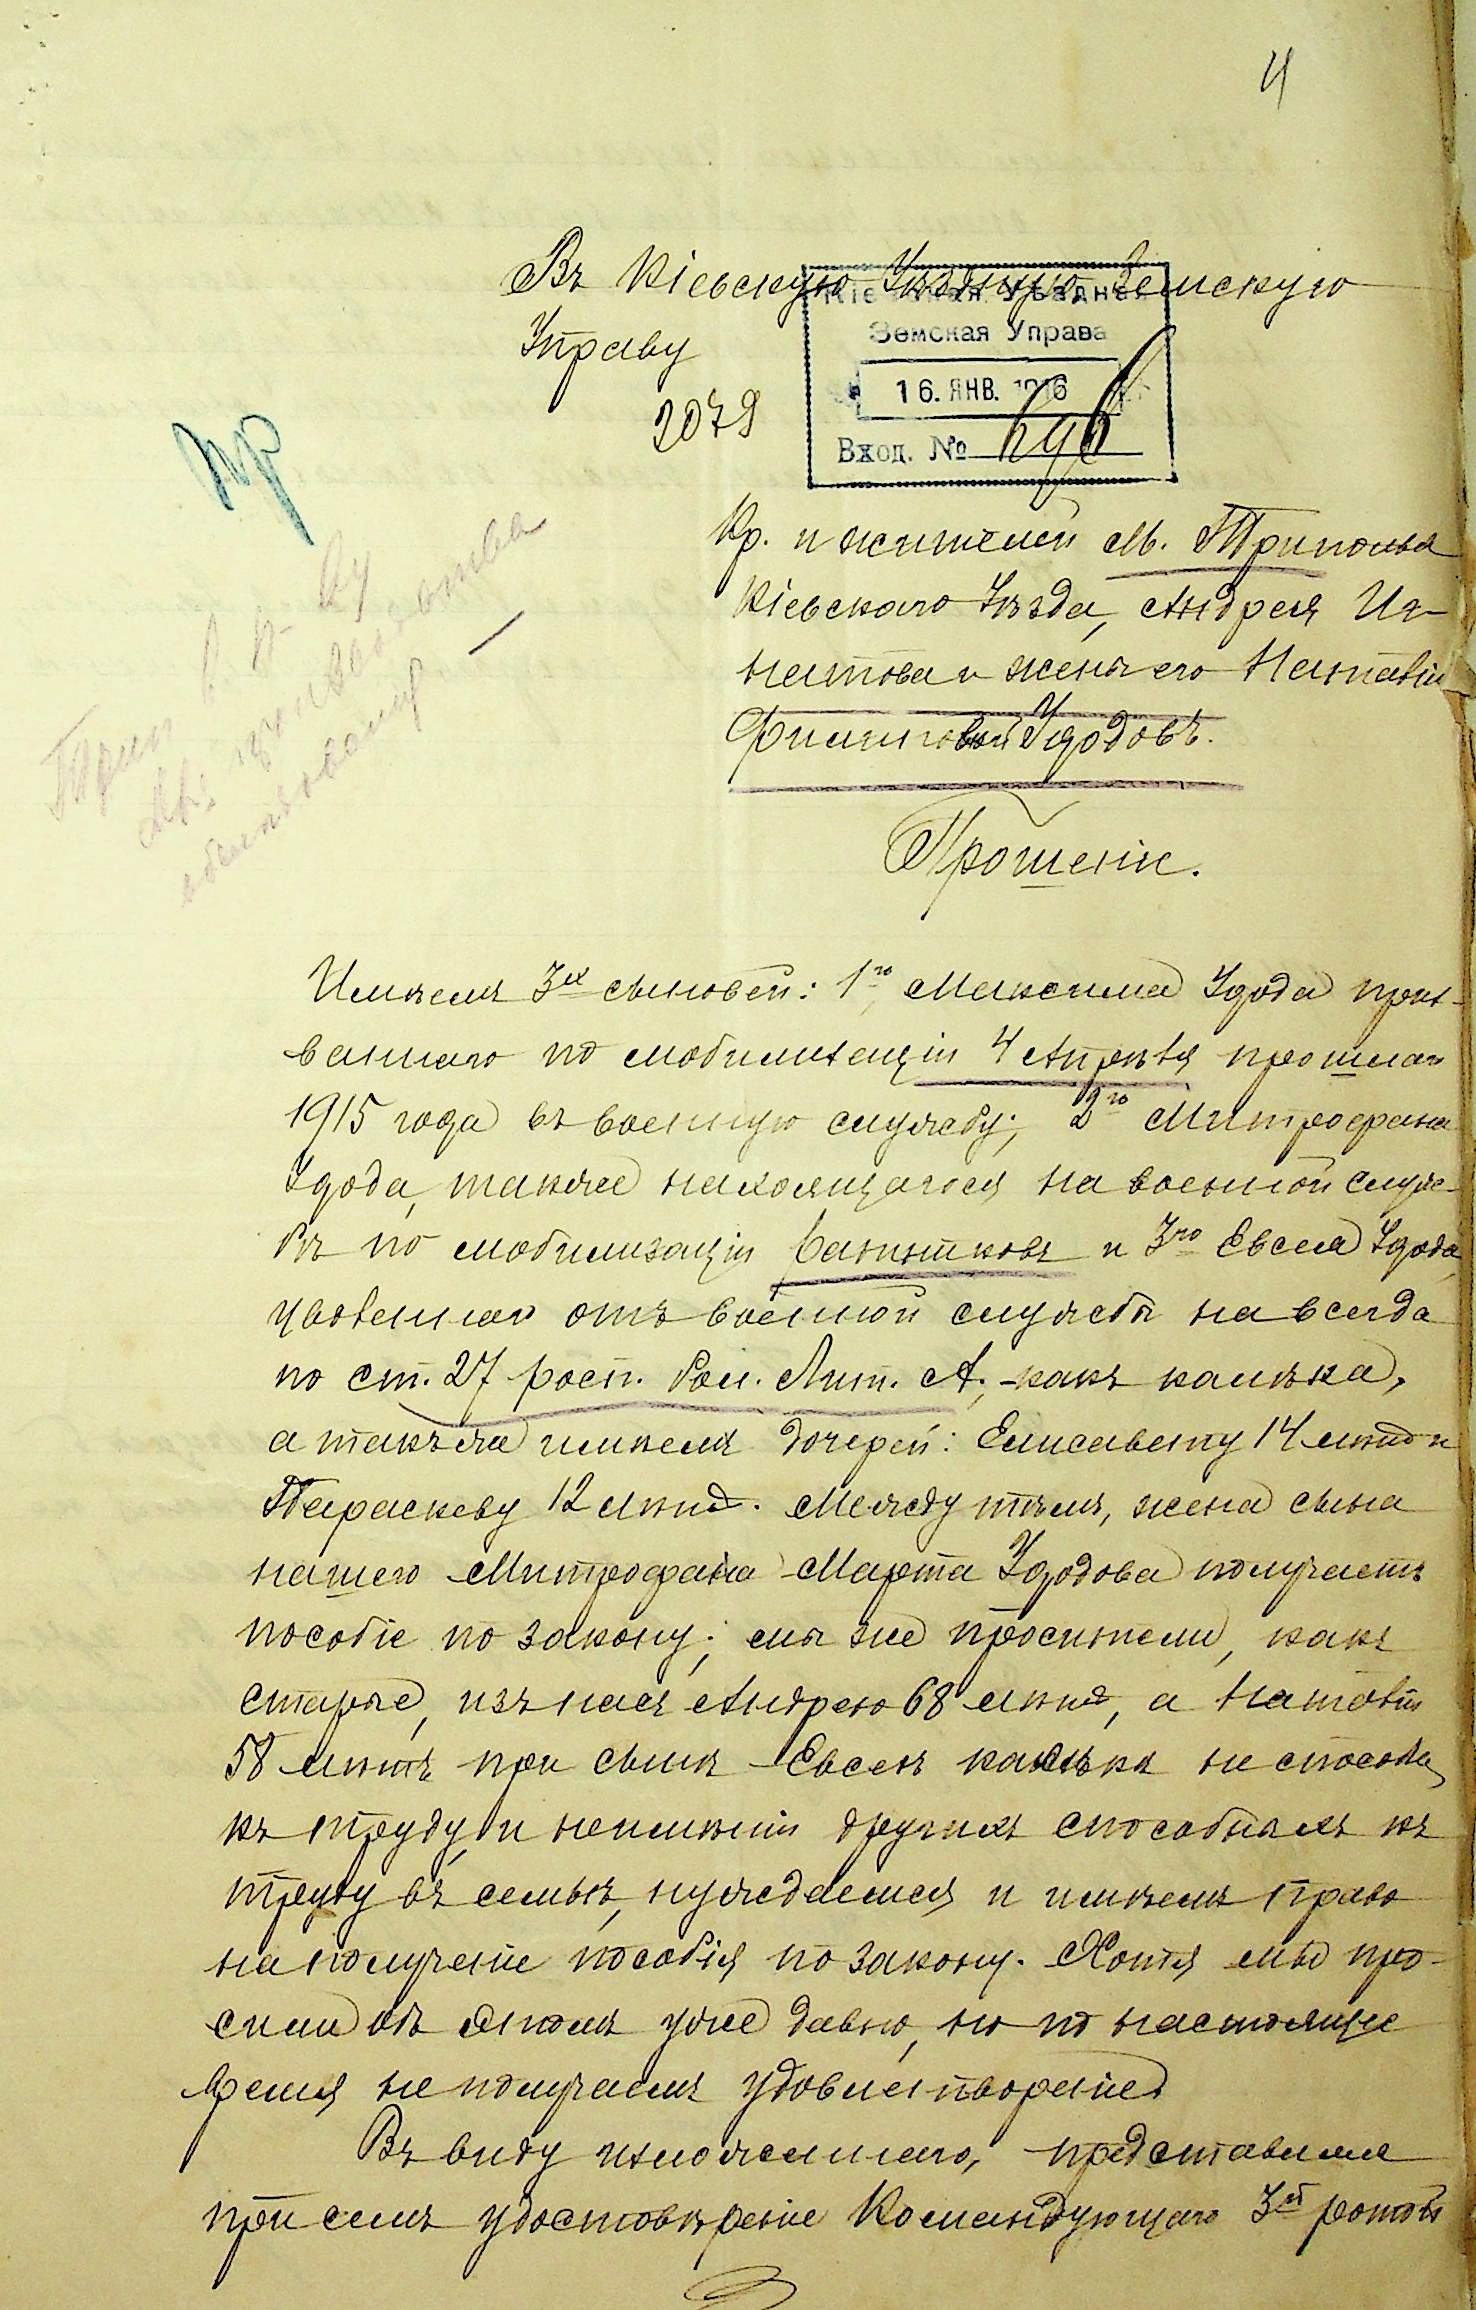 4
Въ Кіевскую Уѣздную Земскую
Управу
Кіевская Уѣздная
Земская Управа
16. ЯНВ. 1916
Вход. №
2079
Кр. и жителей м. Триполья
Кіевскаго Уѣзда, Андрея Иг-
натова и жены его Наталіи
Филиповой Удодовъ.
Прошеніе.
Имѣемъ 3хъ сыновей: 1го Максима Удода приз-
ваннаго по мобилизаціи 4 Апрѣля прошлаго
1915 года въ военную службу; 2го Митрофана
Удода, также находящагося на военной служ-
бѣ по мобилизаціи и 3го Евсея Удода,
уволеннаго отъ военной службы на всегда
по ст. 27 росп. бол. Лит. А., какъ калѣка,
а такъже имѣемъ дочерей: Елисавету 14 лѣтъ и
Параскеву 12 лѣтъ. Между тѣмъ, жена сына
нашего Митрофана Марта Удодова получаетъ
пособіе по закону; мы же просители, какъ
старые, изъ насъ Андрею 68 лѣтъ, а Наталіи
58 лѣтъ при сынѣ Евсеѣ калѣкѣ не способн.
къ труду, и неимѣніи другихъ способныхъ къ
труду въ семьѣ, нуждаемся и имѣемъ право
на полученіе пособія по закону. Хотя мы про-
сили объ этомъ уже давно, но по настоящее
время не получаемъ удовлетворенія
Въ виду изложеннаго, представляя
при семъ удостовѣреніе Командующаго 3й роты